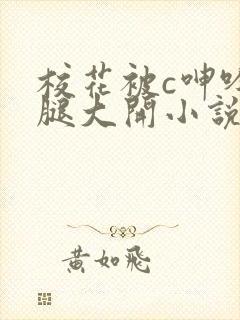 校花被c呻吟
腿大開小說
黃如飛